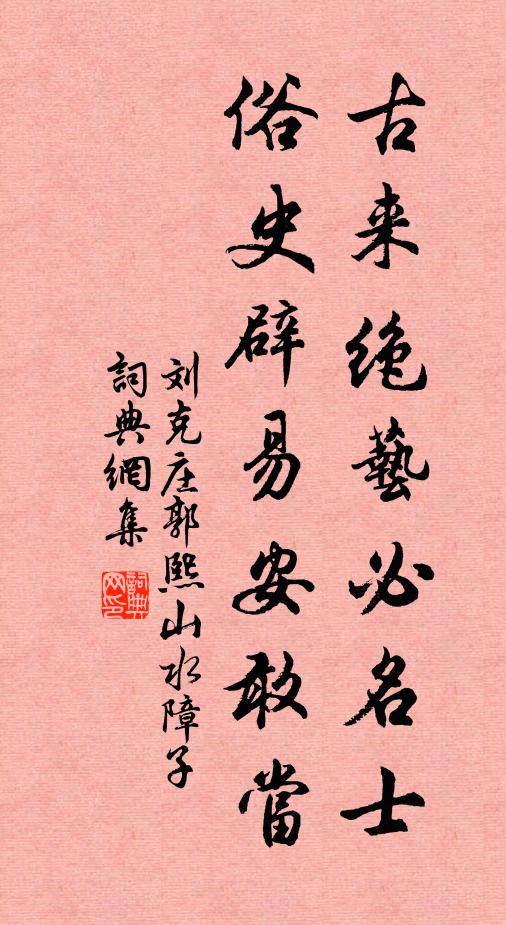 古来绝藝必名士
俗史辟易安敢當
刘克庄郭熙山水障子
詞典網集
詞典網印